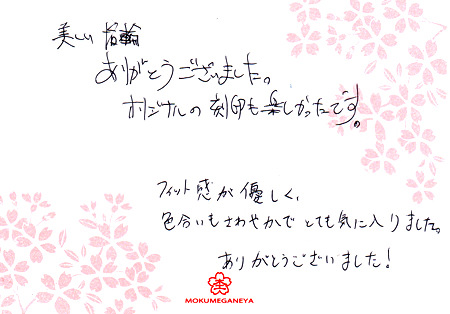 美しい指輪
ありがとうございました。
オリジナルの刻印も楽しかったです。
フィット感が優しく、
色合いもさわやかで とても気に入りました。
ありがとうございました!
MOKUMEGANEYA